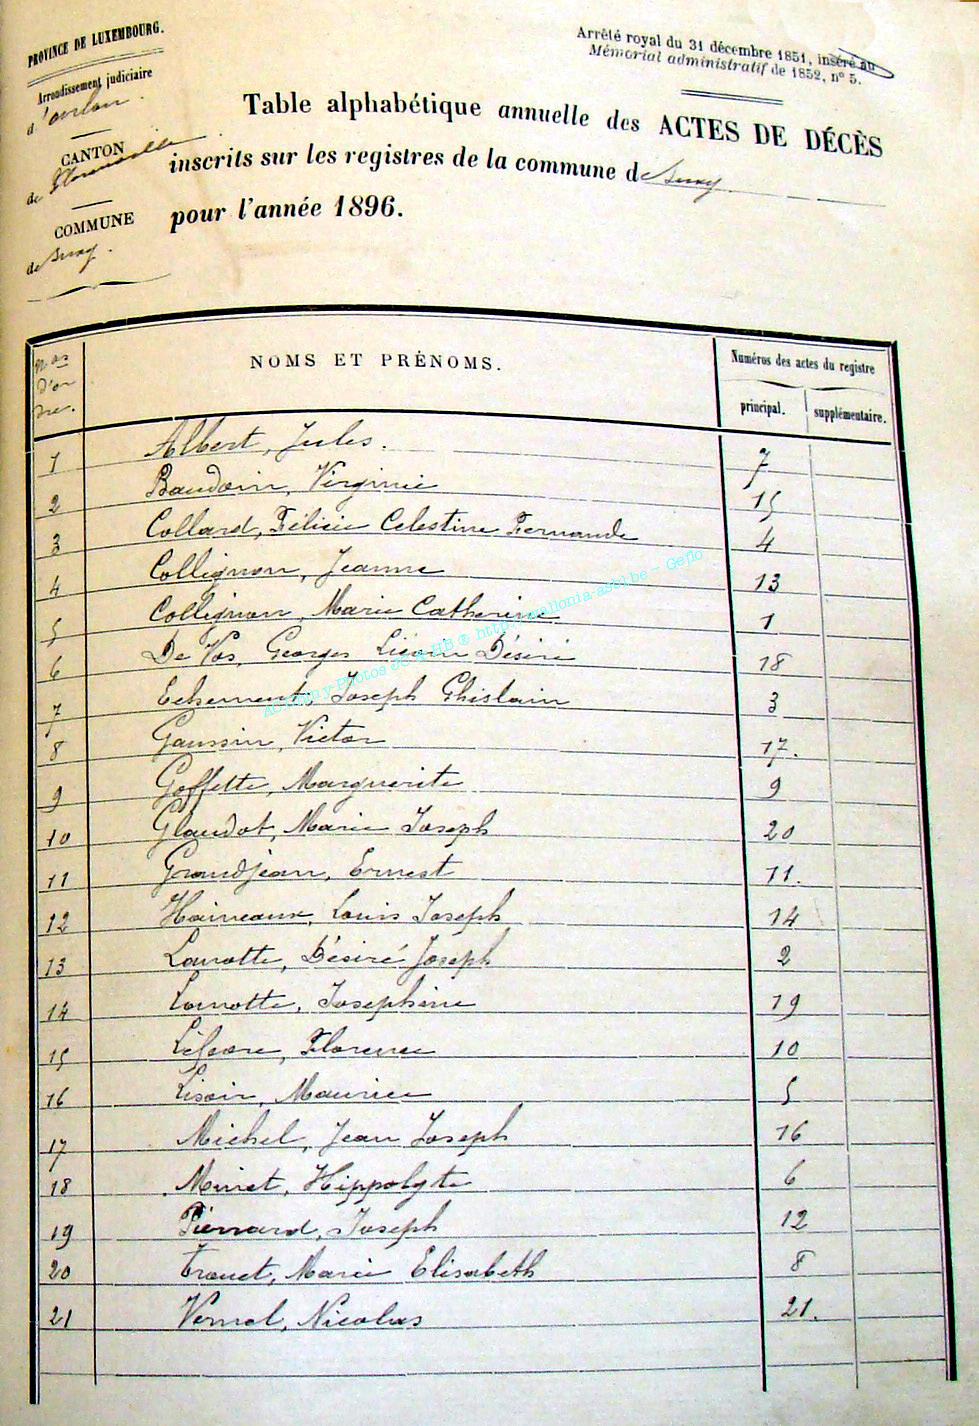 PROVINCE DE LUXEMBOURG.
Arrondissement judiciaire
d'arlon.
CANTON
de Florenville
COMMUNE
de Suxy.
Arrêté royal du 31 décembre 1851, inséré au
Mémorial administratif de 1852, nº 5.
Table alphabétique annuelle des ACTES DE DÉCÈS
inscrits sur les registres de la commune de Suxy.
pour l'année 1896.
Nos d'ordre.
NOMS ET PRÉNOMS.
Numéros des actes du registre
principal. supplémentaire.
1 Albert, Jules. 7
2 Baudoin, Virginie 15
3 Collard, Félicie Celestine Fernande 4
4 Collignon, Jeanne 13
5 Collignon, Marie Catherine 1
6 De Vos, Georges Désiré 18
7 Echement, Joseph Ghislain 3
8 Gaussin, Victor 17.
9 Goffette, Marguerite 9
10 Glaudot, Marie Joseph 20
11 Grandjean, Ernest 11.
12 Haineaux, Louis Joseph 14
13 Lamotte, Désiré Joseph 2
14 Lamotte, Josephine 19
15 Florence 10
16 Lisoir, Maurice 5
17 Michel, Jean Joseph 16
18 Minet, Hippolyte 6
19 Pierrard, Joseph 12
20 Trouet, Marie Elisabeth 8
21 Vernel, Nicolas 21.